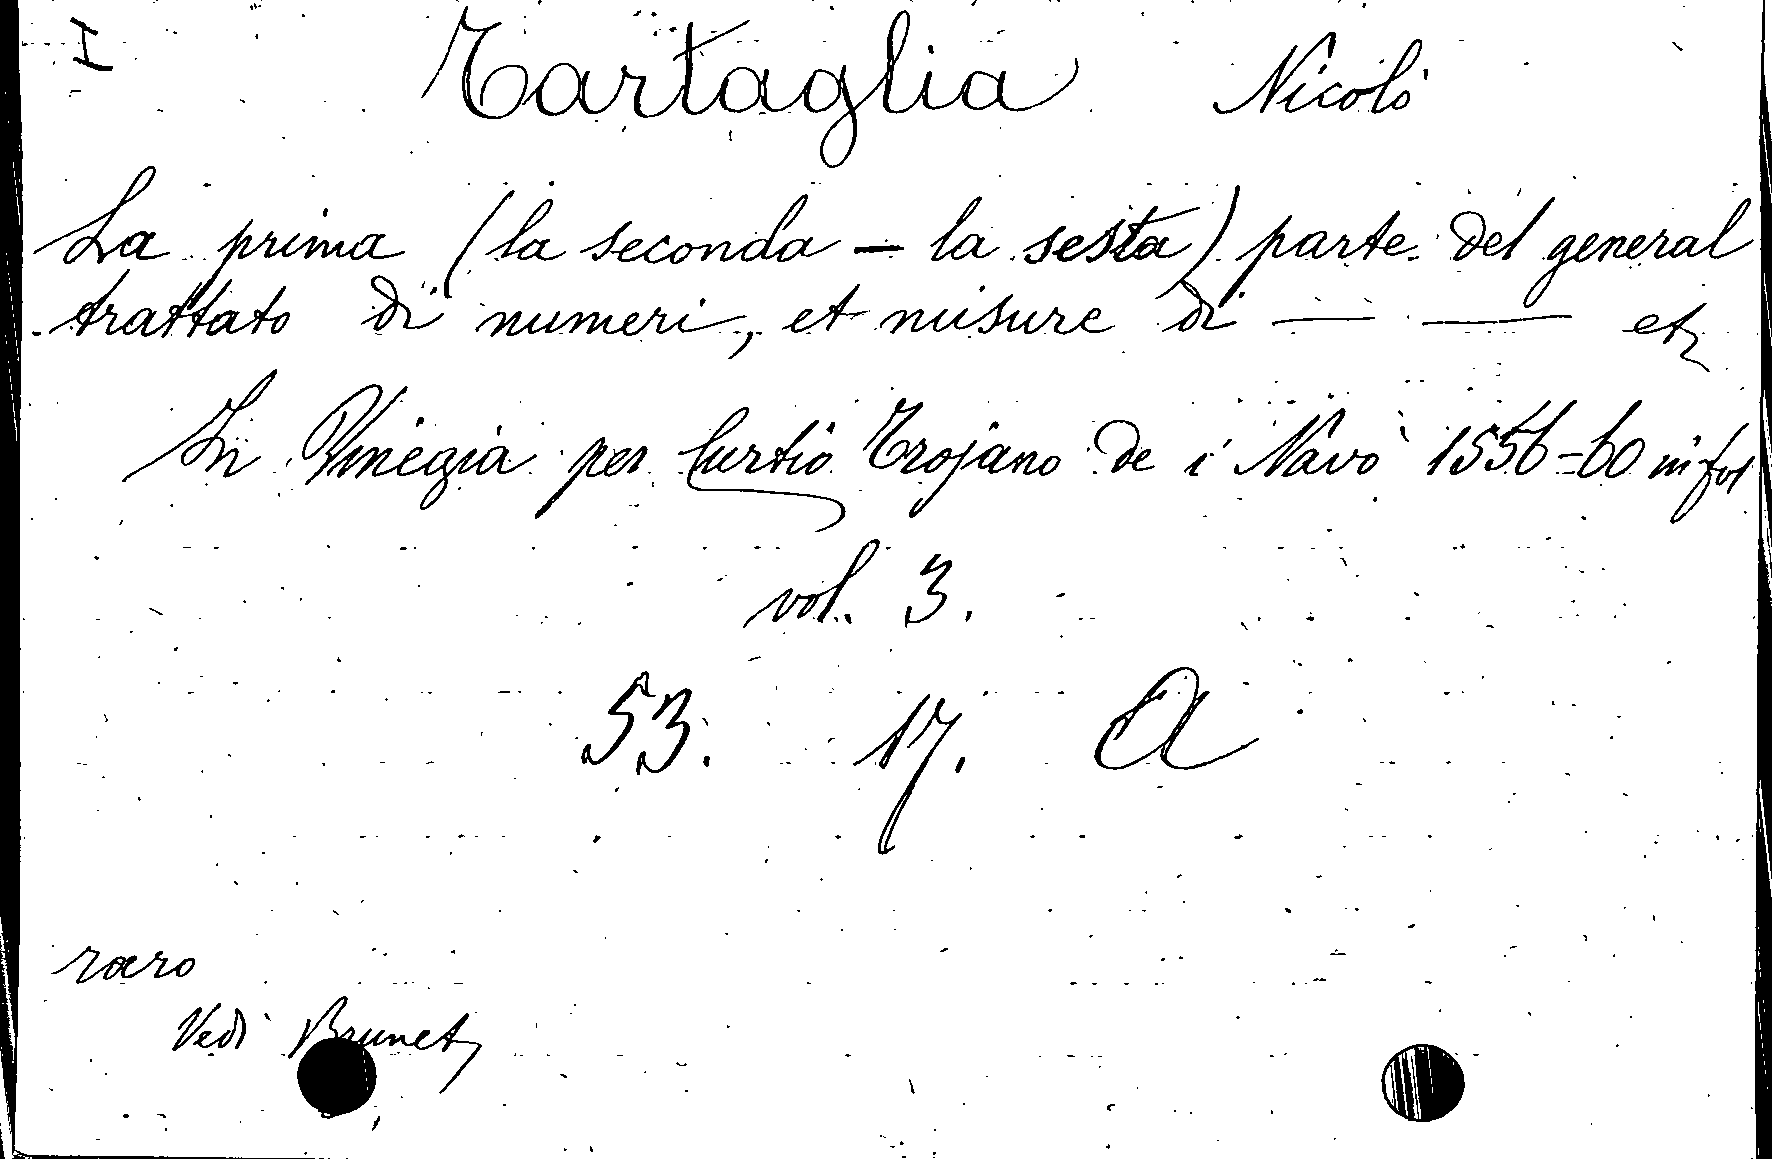 I
Tartaglia Nicolò
La prima (la seconda – la sesta) parte del general
trattato di numeri, et misure di — — etc
In Vinegia per Curtio Trojano de i Navò 1556-60 in fol
vol. 3.
53. 17. A
raro
Vedi Brunet